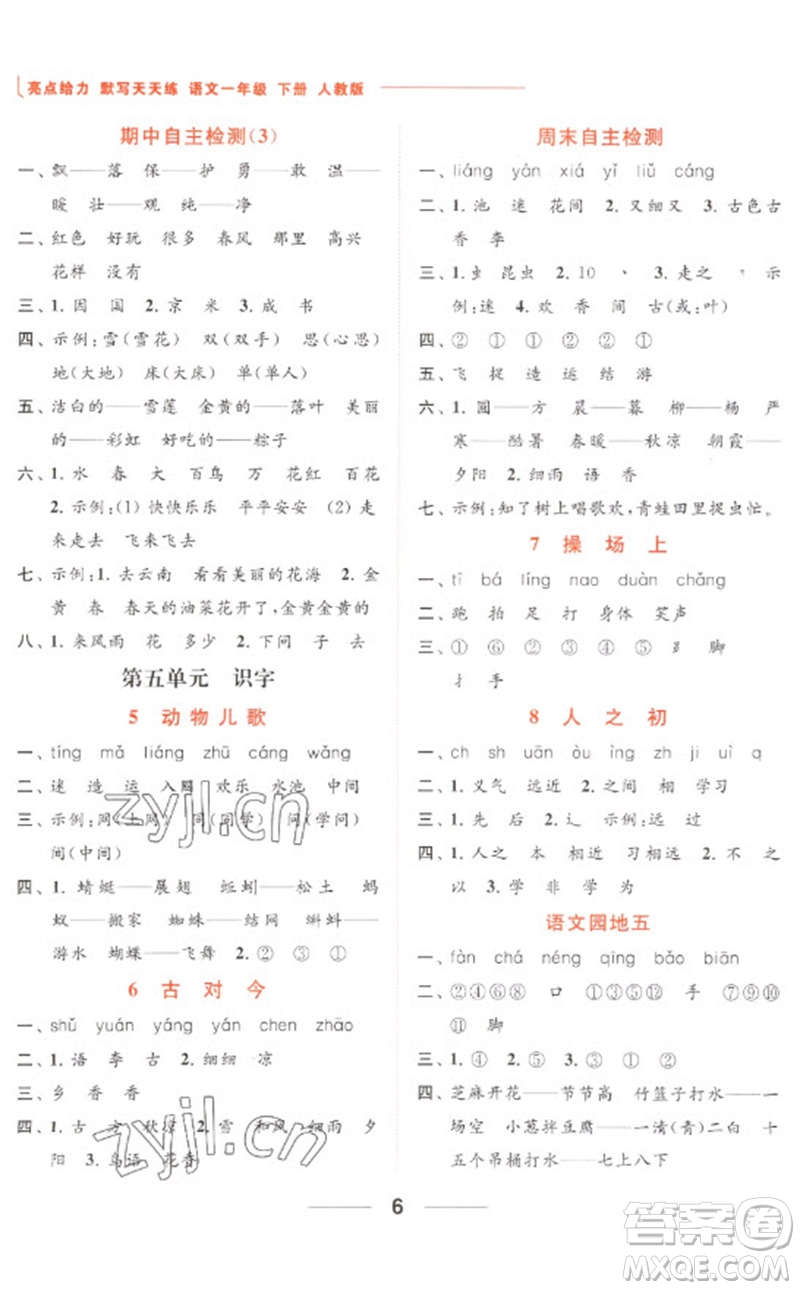 亮点给力 默写天天练 语文一年级 下册 人教版
期中自主检测(3)
一、飘——落 保——护 勇——敢 温——
暖 壮——观 纯——净
二、红色 好玩 很多 春风 那里 高兴
花样 没有
三、1. 因 国 2. 京 米 3. 成 书
四、示例:雪(雪花) 双(双手) 思(心思)
地(大地) 床(大床) 单(单人)
五、洁白的——雪莲 金黄的——落叶 美丽
的——彩虹 好吃的——粽子
六、1. 水 春 大 百鸟 万 花红 百花
2. 示例:(1) 快快乐乐 平平安安 (2) 走
来走去 飞来飞去
七、示例:1. 去云南 看看美丽的花海 2. 金
黄 春 春天的油菜花开了,金黄金黄的
八、1. 来风雨 花 多少 2. 下问 子 去
第五单元 识字
5 动物儿歌
一、tíng mǎ liáng zhū cáng wǎng
二、迷 造 运 入网 欢乐 水池 中间
三、示例:网(上网) 同(同学) 问(学问)
间(中间)
四、1. 蜻蜓——展翅 蚯蚓——松土 蚂
蚁——搬家 蜘蛛——结网 蝌蚪——
游水 蝴蝶——飞舞 2. ② ③ ①
6 古对今
一、shǔ yuán yáng yán chen zhāo
二、1. 语 李 古 2. 细细 凉
三、乡 香 香
四、1. 古 方 秋凉 2. 雪 和风 细雨 夕
阳 3. 鸟语 花香
周末自主检测
一、liáng yán xiá yǐ liǔ cáng
二、1. 池 迷 花间 2. 又细又 3. 古色古
香 李
三、1. 虫 昆虫 2. 10 丶 3. 走之 示
例:迷 4. 欢 香 间 古(或:叶)
四、② ① ① ② ② ①
五、飞 捉 造 运 结 游
六、1. 圆——方 晨——暮 柳——杨 严
寒——酷暑 春暖——秋凉 朝霞——
夕阳 2. 细雨 语 香
七、示例:知了树上唱歌欢,青蛙田里捉虫忙。
7 操场上
一、tī bá líng nao duàn chǎng
二、跑 拍 足 打 身体 笑声
三、① ⑥ ② ④ ③ ⑤ 脚
扌 手
8 人之初
一、ch sh uān òu ìng zh ji uì q
二、1. 义气 远近 2. 之间 相 学习
三、1. 先 后 2. 辶 示例:远 过
四、1. 人之 本 相近 习相远 2. 不 之
以 3. 学 非 学 为
语文园地五
一、fàn chá néng qìng bǎo biān
二、②④⑥⑧ 口 ①③⑤ 手 ⑦⑨⑩
⑪ 脚
三、1. ④ 2. ⑤ 3. ① 4. ③ 5. ②
四、芝麻开花——节节高 竹篮子打水——一
场空 小葱拌豆腐——一清(青)二白 十
五个吊桶打水——七上八下
6
zyjl.cn
zyjl.cn
答案圈
MXQE.COM